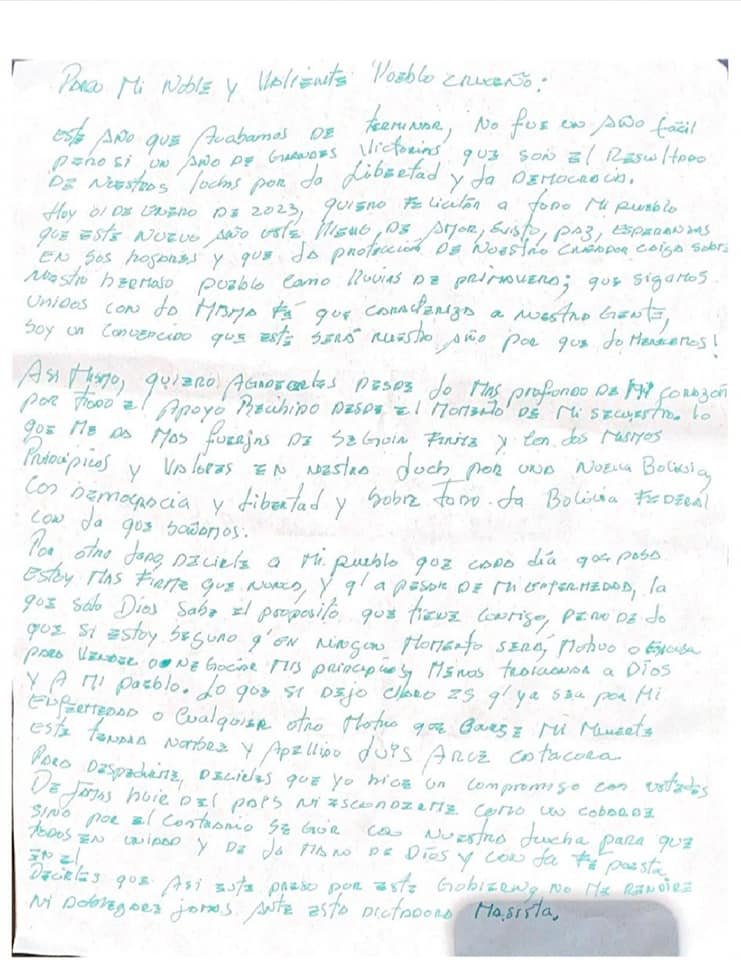 Para Mi Noble y Valiente Pueblo cruceño:
Este año que Acabamos DE terminar, No fue un Año fácil
pero si un Año DE Grandes Victorias que son el Resultado
DE Nuestras luchas por la Libertad y la Democracia.
Hoy 01 DE Enero DE 2023, quiero Felicitar a todo Mi pueblo
que este Nuevo Año esté lleno, DE Amor, Gusto, paz, esperanzas
EN sus hogares y que la protección DE Nuestro Creador caiga sobre
Nuestro hermoso pueblo como lluvias DE primavera; que sigamos
Unidos con la Misma Fé que caracteriza a Nuestra Gente,
Soy un Convencido que este será nuestro Año por que lo Merecemos!
Asi Mismo, quiero Agradecerles Desde lo Mas profundo DE Mi corazón
por todo el Apoyo Recibido Desde el Momento DE Mi secuestro. lo
que Me da Mas fuerzas DE Seguir Firme y con los Mismos
Principios y Valores EN Nuestra lucha por una Nueva Bolivia,
Con Democracia y Libertad y Sobre todo la Bolivia FEDERAL
con la que soñamos.
Por otro lado, Decirle a Mi pueblo que cada día que pasa
Estoy Mas Firme que Nunca, y q' a pesar DE Mi enfermedad, la
que solo Dios sabe el proposito que tiene conmigo, pero DE lo
que si estoy seguro q' en ningun Momento será, Motivo o Excusa
para Vender o Negociar Mis principios, y Menos traicionar a Dios
Y A Mi pueblo. Lo que si Dejo claro es q' ya sea por Mi
Enfermedad o Cualquier otro Motivo que Cause Mi Muerte
este tendra Nombre y Apellido Luis Arce Catacora
Para Despedirme, Decirles que yo hice un compromiso con ustedes
De jamas huir Del país Ni esconderme como un cobarde
sino por el contrario Seguir con Nuestra lucha para que
todos EN unidad y DE la Mano DE Dios y con la Fé puesta
EN el.
Decirles que Asi este preso por este Gobierno, No Me Rendire
Ni Doblegare jamas Ante esta Dictadura Masista.